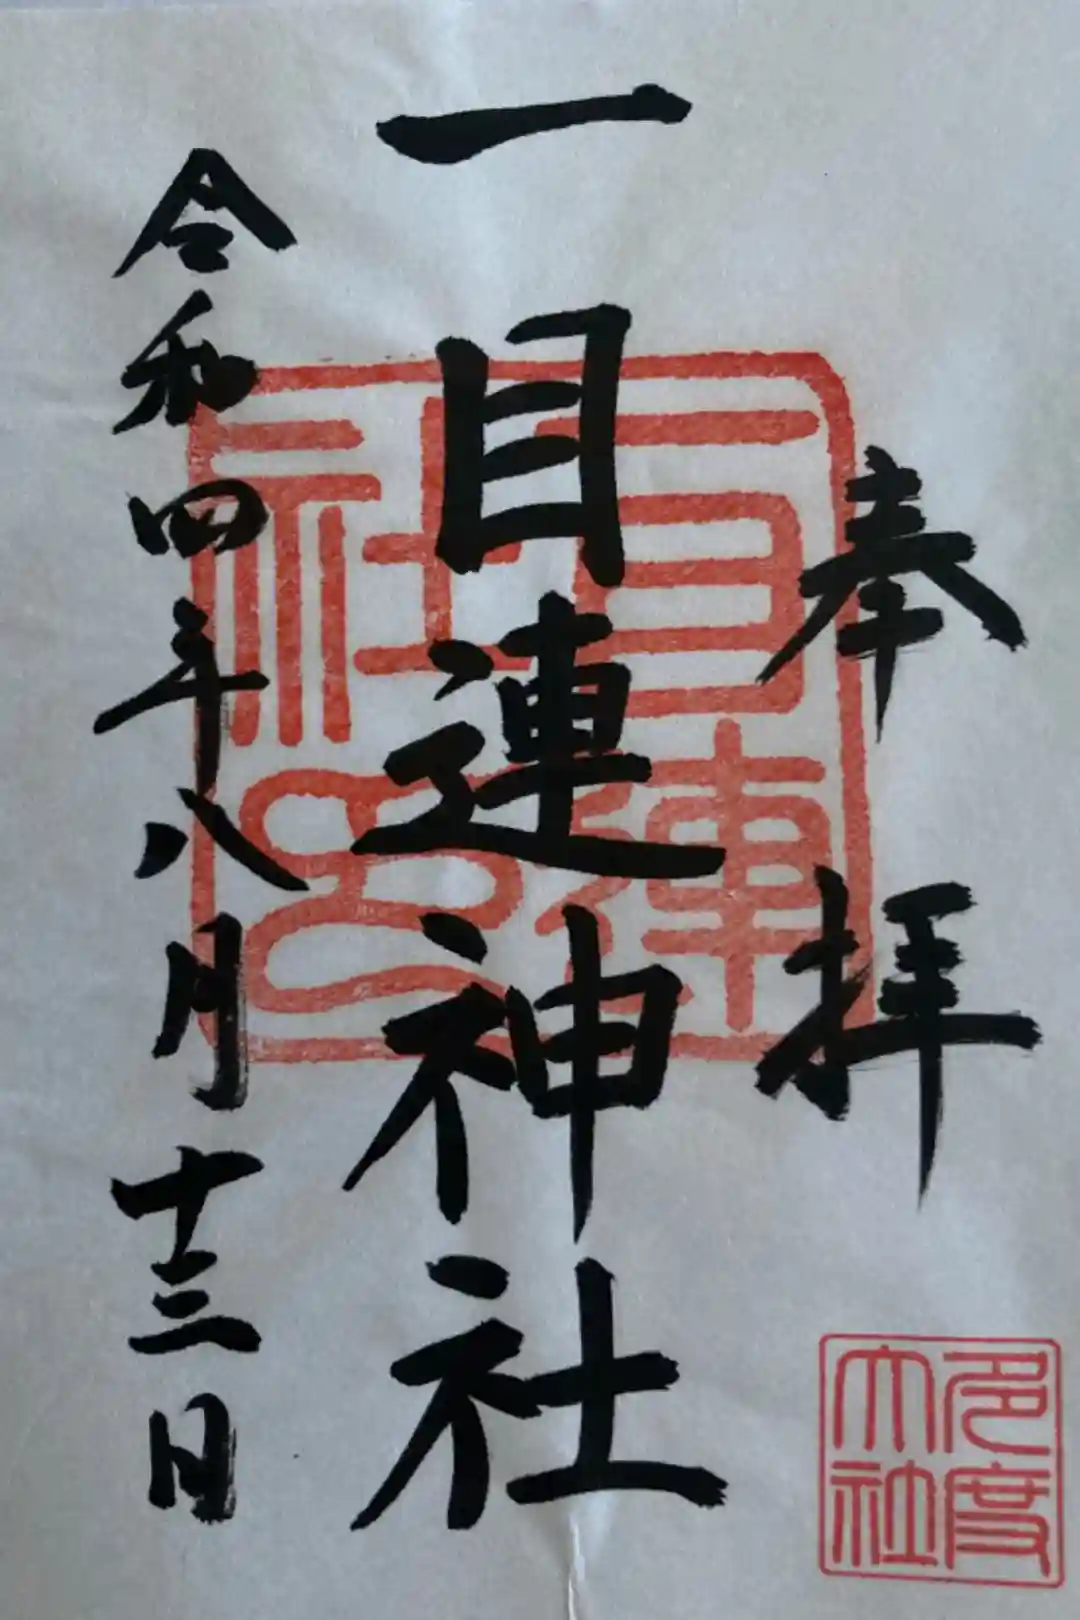 奉拝
一目連神社
令和四年八月十三日
多度
大社